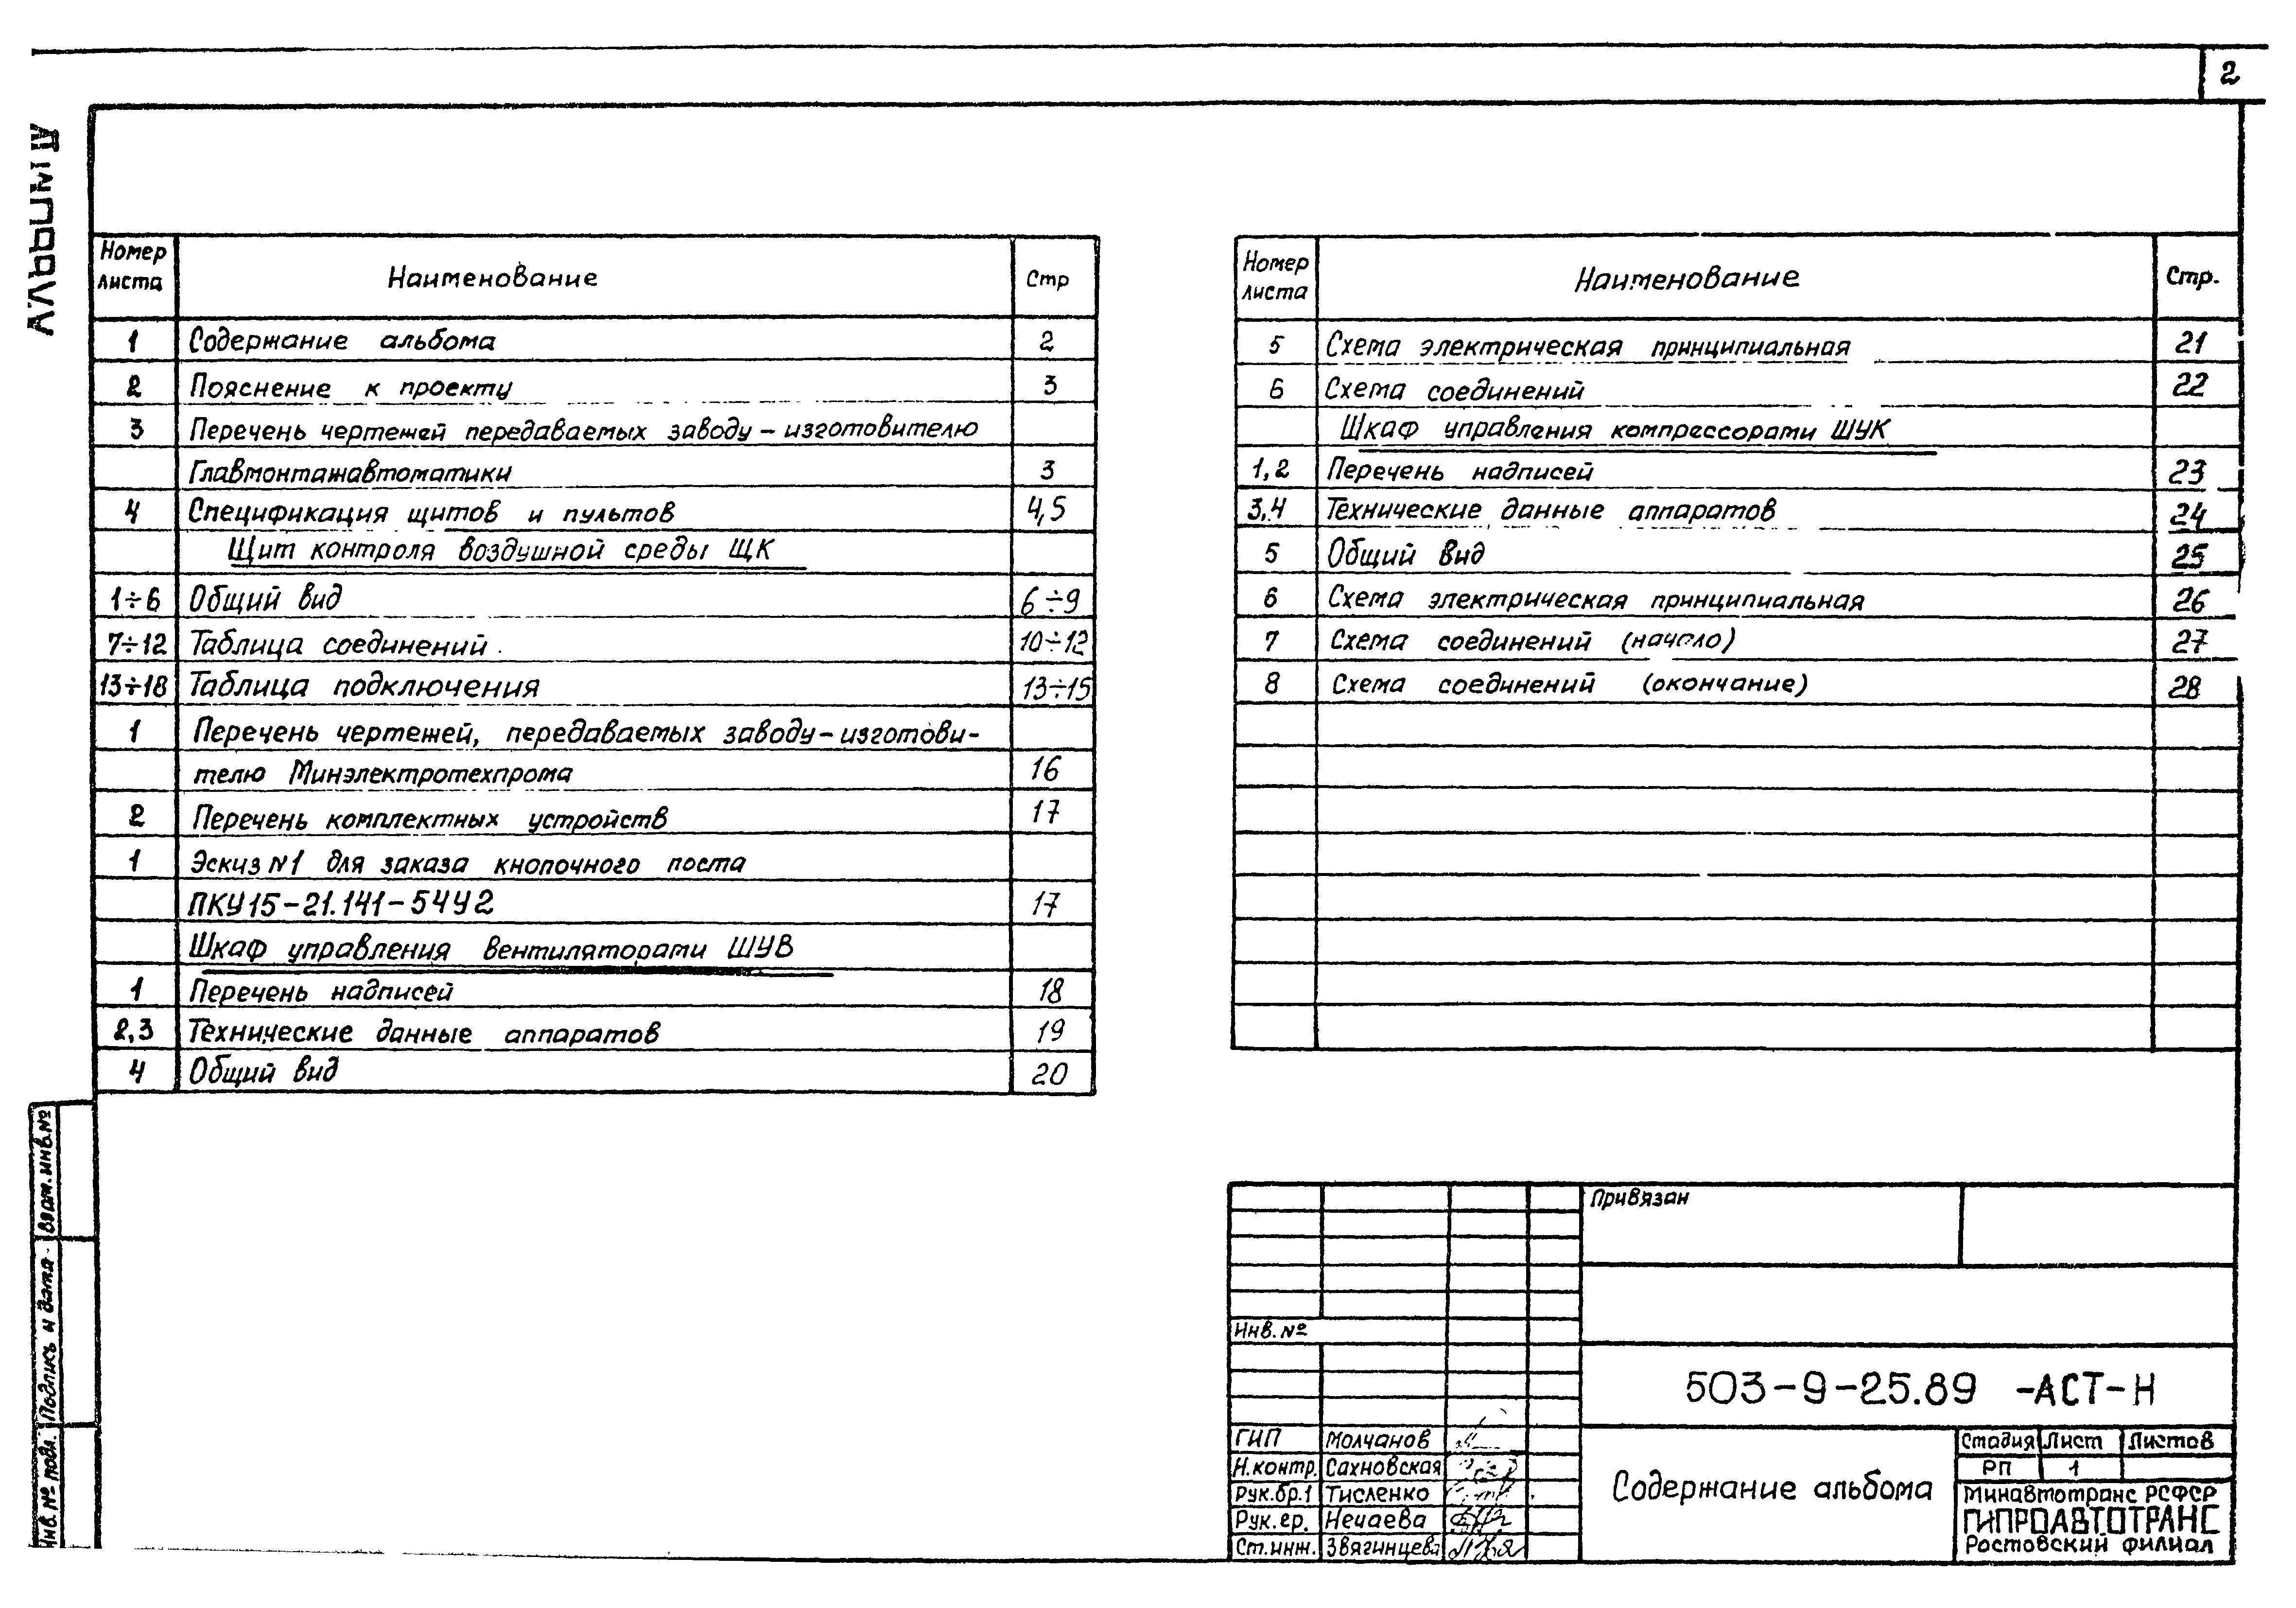 2
Альбом IV
Номер листа Наименование Стр
1 Содержание альбома 2
2 Пояснение к проекту 3
3 Перечень чертежей передаваемых заводу-изготовителю
Главмонтажавтоматики 3
4 Спецификация щитов и пультов 4,5
Щит контроля воздушной среды ЩК
1÷6 Общий вид 6÷9
7÷12 Таблица соединений 10÷12
13÷18 Таблица подключения 13÷15
1 Перечень чертежей, передаваемых заводу-изготови-
телю Минэлектротехпрома 16
2 Перечень комплектных устройств 17
1 Эскиз №1 для заказа кнопочного поста
ПКУ15-21.141-54У2 17
Шкаф управления вентиляторами ШУВ
1 Перечень надписей 18
2,3 Технические данные аппаратов 19
4 Общий вид 20
Номер листа Наименование Стр.
5 Схема электрическая принципиальная 21
6 Схема соединений 22
Шкаф управления компрессорами ШУК
1,2 Перечень надписей 23
3,4 Технические данные аппаратов 24
5 Общий вид 25
6 Схема электрическая принципиальная 26
7 Схема соединений (начало) 27
8 Схема соединений (окончание) 28
Взам. инв. №
Подпись и дата
Инв. № подл.
Привязан
Инв. №
503-9-25.89 -АСТ-Н
ГИП Молчанов
Н.контр. Сахновская
Рук.бр.1 Тисленко
Рук.гр. Нечаева
Ст.инж. Звягинцева
Содержание альбома
Стадия Лист Листов
РП 1
Минавтотранс РСФСР
ГИПРОАВТОТРАНС
Ростовский филиал